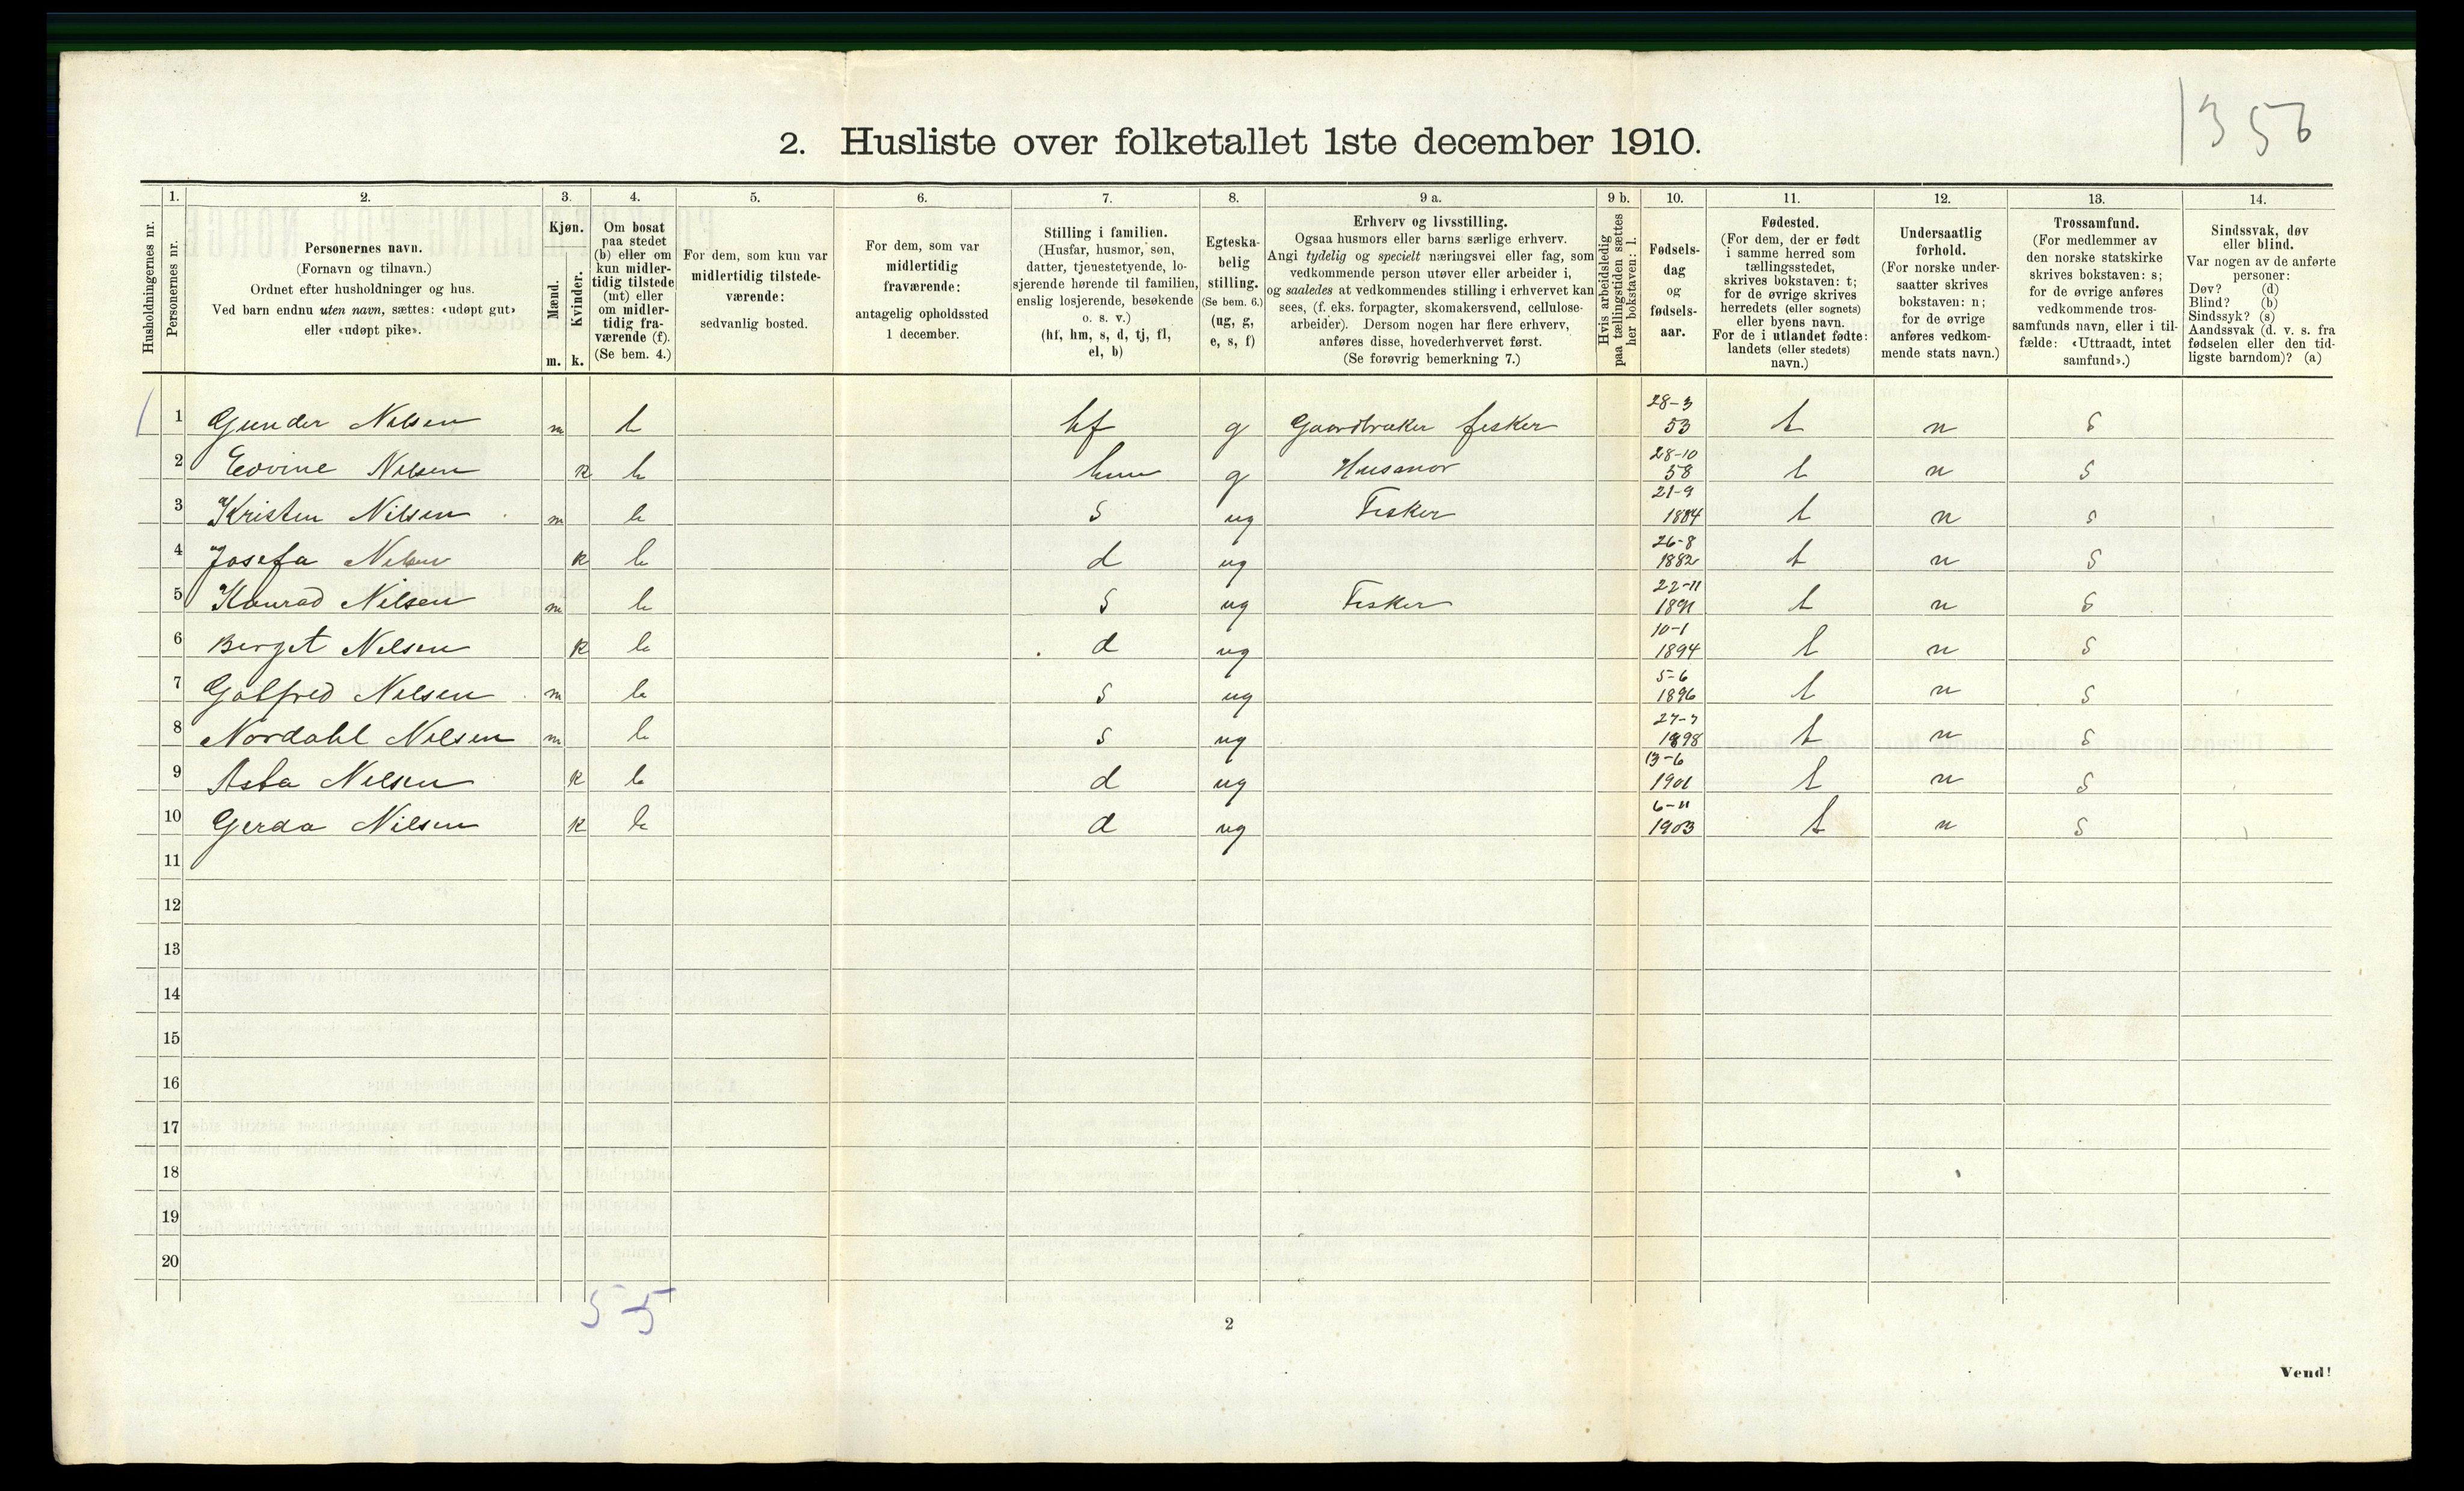 1356
2. Husliste over folketallet 1ste december 1910.
Husholdningernes nr.
1. Personernes nr.
2. Personernes navn.
(Fornavn og tilnavn.)
Ordnet efter husholdninger og hus.
Ved barn endnu uten navn, sættes: «udøpt gut»
eller «udøpt pike».
3. Kjøn.
Mænd. m.
Kvinder. k.
4. Om bosat
paa stedet
(b) eller om
kun midler-
tidig tilstede
(mt) eller
om midler-
tidig fra-
værende (f).
(Se bem. 4.)
5. For dem, som kun var
midlertidig tilstede-
værende:
sedvanlig bosted.
6. For dem, som var
midlertidig
fraværende:
antagelig opholdssted
1 december.
7. Stilling i familien.
(Husfar, husmor, søn,
datter, tjenestetyende, lo-
sjerende hørende til familien,
enslig losjerende, besøkende
o. s. v.)
(hf, hm, s, d, tj, fl,
el, b)
8. Egteska-
belig
stilling.
(Se bem. 6.)
(ug, g,
e, s, f)
9 a. Erhverv og livsstilling.
Ogsaa husmors eller barns særlige erhverv.
Angi tydelig og specielt næringsvei eller fag, som
vedkommende person utøver eller arbeider i,
og saaledes at vedkommendes stilling i erhvervet kan
sees, (f. eks. forpagter, skomakersvend, cellulose-
arbeider). Dersom nogen har flere erhverv,
anføres disse, hovederhvervet først.
(Se forøvrig bemerkning 7.)
9 b. Hvis arbeidsledig
paa tællingstiden sættes
her bokstaven: l.
10. Fødsels-
dag
og
fødsels-
aar.
11. Fødested.
(For dem, der er født
i samme herred som
tællingsstedet,
skrives bokstaven: t;
for de øvrige skrives
herredets (eller sognets)
eller byens navn.
For de i utlandet fødte:
landets (eller stedets)
navn.)
12. Undersaatlig
forhold.
(For norske under-
saatter skrives
bokstaven: n;
for de øvrige
anføres vedkom-
mende stats navn.)
13. Trossamfund.
(For medlemmer av
den norske statskirke
skrives bokstaven: s;
for de øvrige anføres
vedkommende tros-
samfunds navn, eller i til-
fælde: «Uttraadt, intet
samfund».)
14. Sindssvak, døv
eller blind.
Var nogen av de anførte
personer:
Døv? (d)
Blind? (b)
Sindssyk? (s)
Aandssvak (d. v. s. fra
fødselen eller den tid-
ligste barndom)? (a)
1 Gunder Nilsen m b hf g Gaardbruker fisker 28-3 53 t n s
2 Edvine Nilsen k b hm g Husmor 28-10 58 t n s
3 Kristen Nilsen m b s ug Fisker 21-9 1884 t n s
4 Josefa Nilsen k b d ug 26-8 1882 t n s
5 Konrad Nilsen m b s ug Fisker 22-11 1891 t n s
6 Berget Nilsen k b d ug 10-1 1894 t n s
7 Golfred Nilsen m b s ug 5-6 1896 t n s
8 Nordahl Nilsen m b s ug 27-7 1898 t n s
9 Asta Nilsen k b d ug 13-6 1901 t n s
10 Gerda Nilsen k b d ug 6-11 1903 t n s
11
12
13
14
15
16
17
18
19
20
5-5
2
Vend!